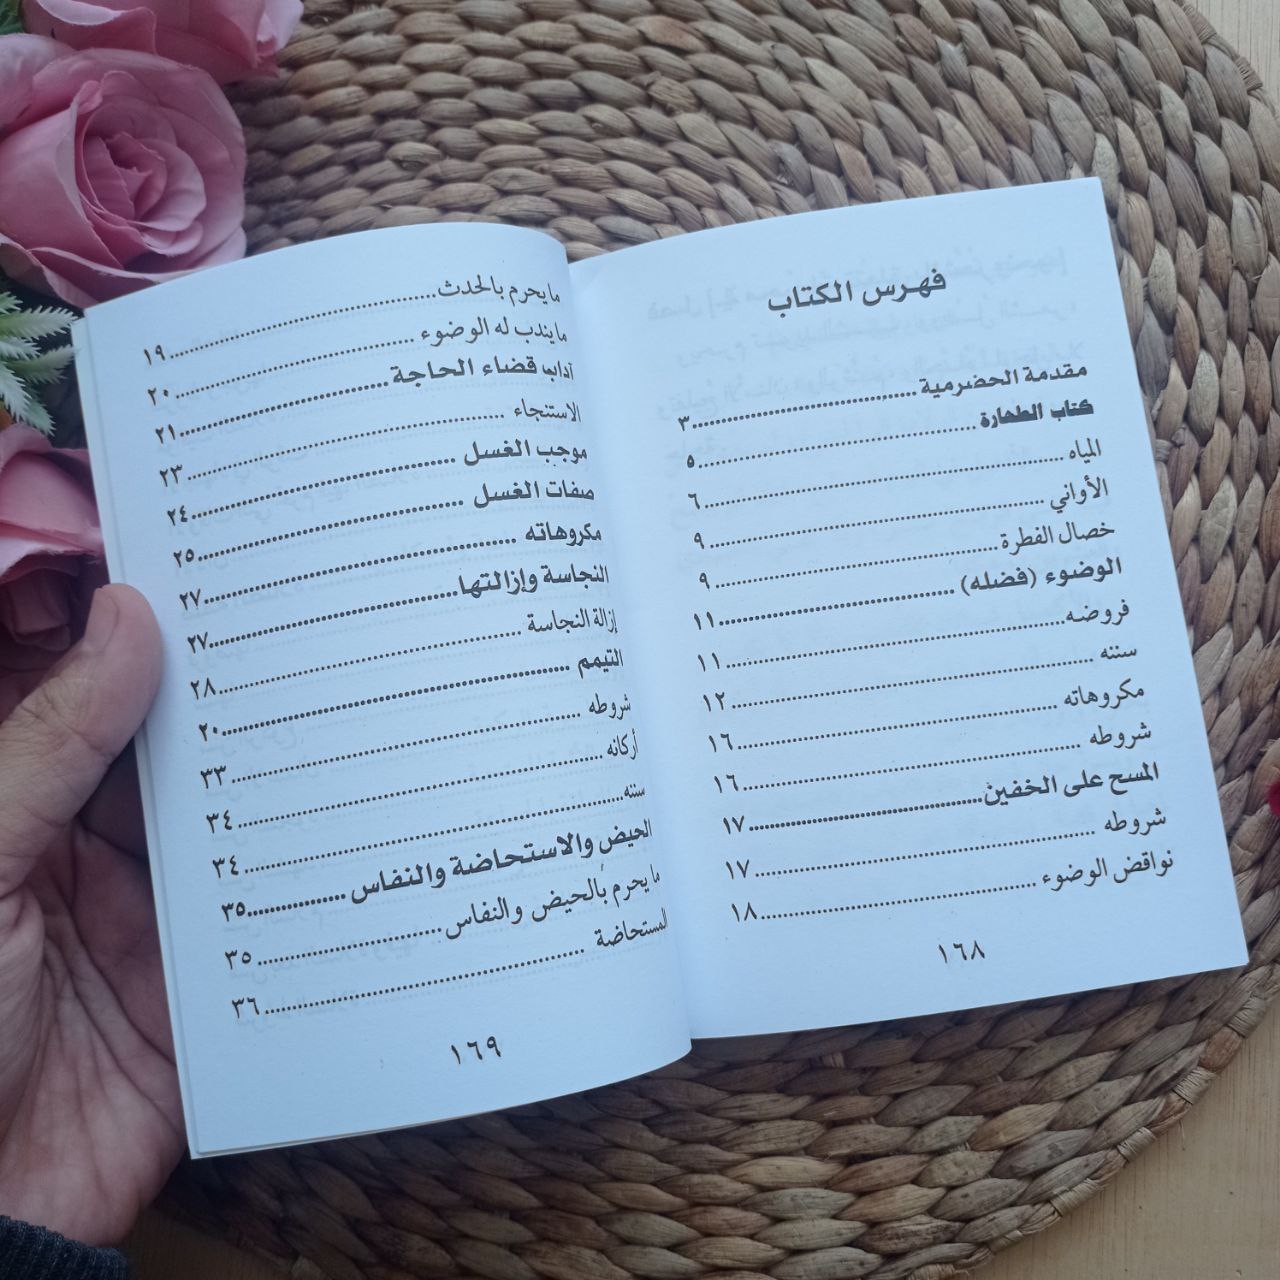 فهرس الكتاب
مقدمة الحضرمية ............ ٣
كتاب الطهارة ............ ٥
المياه ............ ٦
الأواني ............ ٩
خصال الفطرة ............ ٩
الوضوء (فضله) ............ ١١
فروضه ............ ١١
سننه ............ ١٢
مكروهاته ............ ١٦
شروطه ............ ١٦
المسح على الخفين ............ ١٧
شروطه ............ ١٧
نواقض الوضوء ............ ١٨
١٦٨
ما يحرم بالحدث ............ ١٩
ما يندب له الوضوء ............ ٢٠
آداب قضاء الحاجة ............ ٢١
الاستنجاء ............ ٢٣
موجب الغسل ............ ٢٤
صفات الغسل ............ ٢٥
مكروهاته ............ ٢٧
النجاسة وإزالتها ............ ٢٧
إزالة النجاسة ............ ٢٨
التيمم ............ ٢٠
شروطه ............ ٣٣
أركانه ............ ٣٤
سننه ............ ٣٤
الحيض والاستحاضة والنفاس ............ ٣٥
ما يحرم بالحيض والنفاس ............ ٣٥
المستحاضة ............ ٣٦
١٦٩